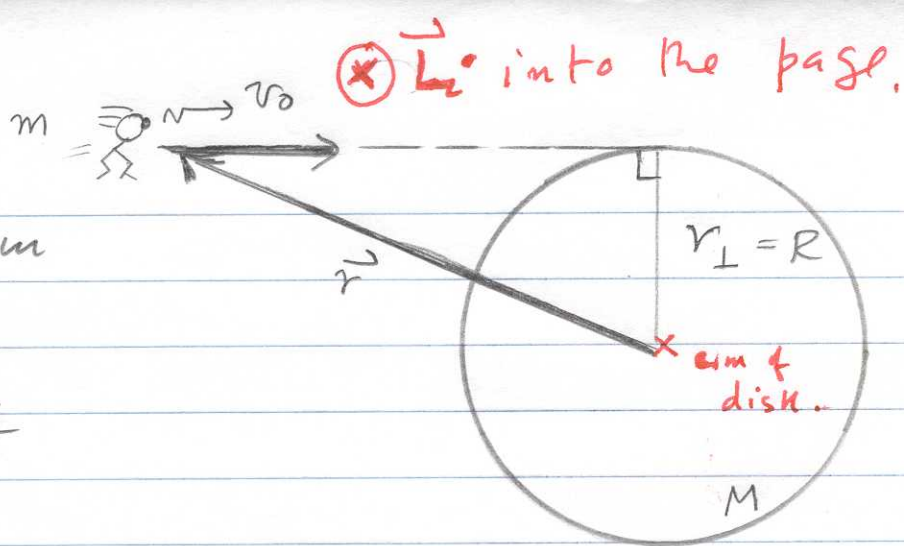 ⊗ L⃗i into the page.
m v₀
r⃗
r⊥ = R
× cm of
disk.
M